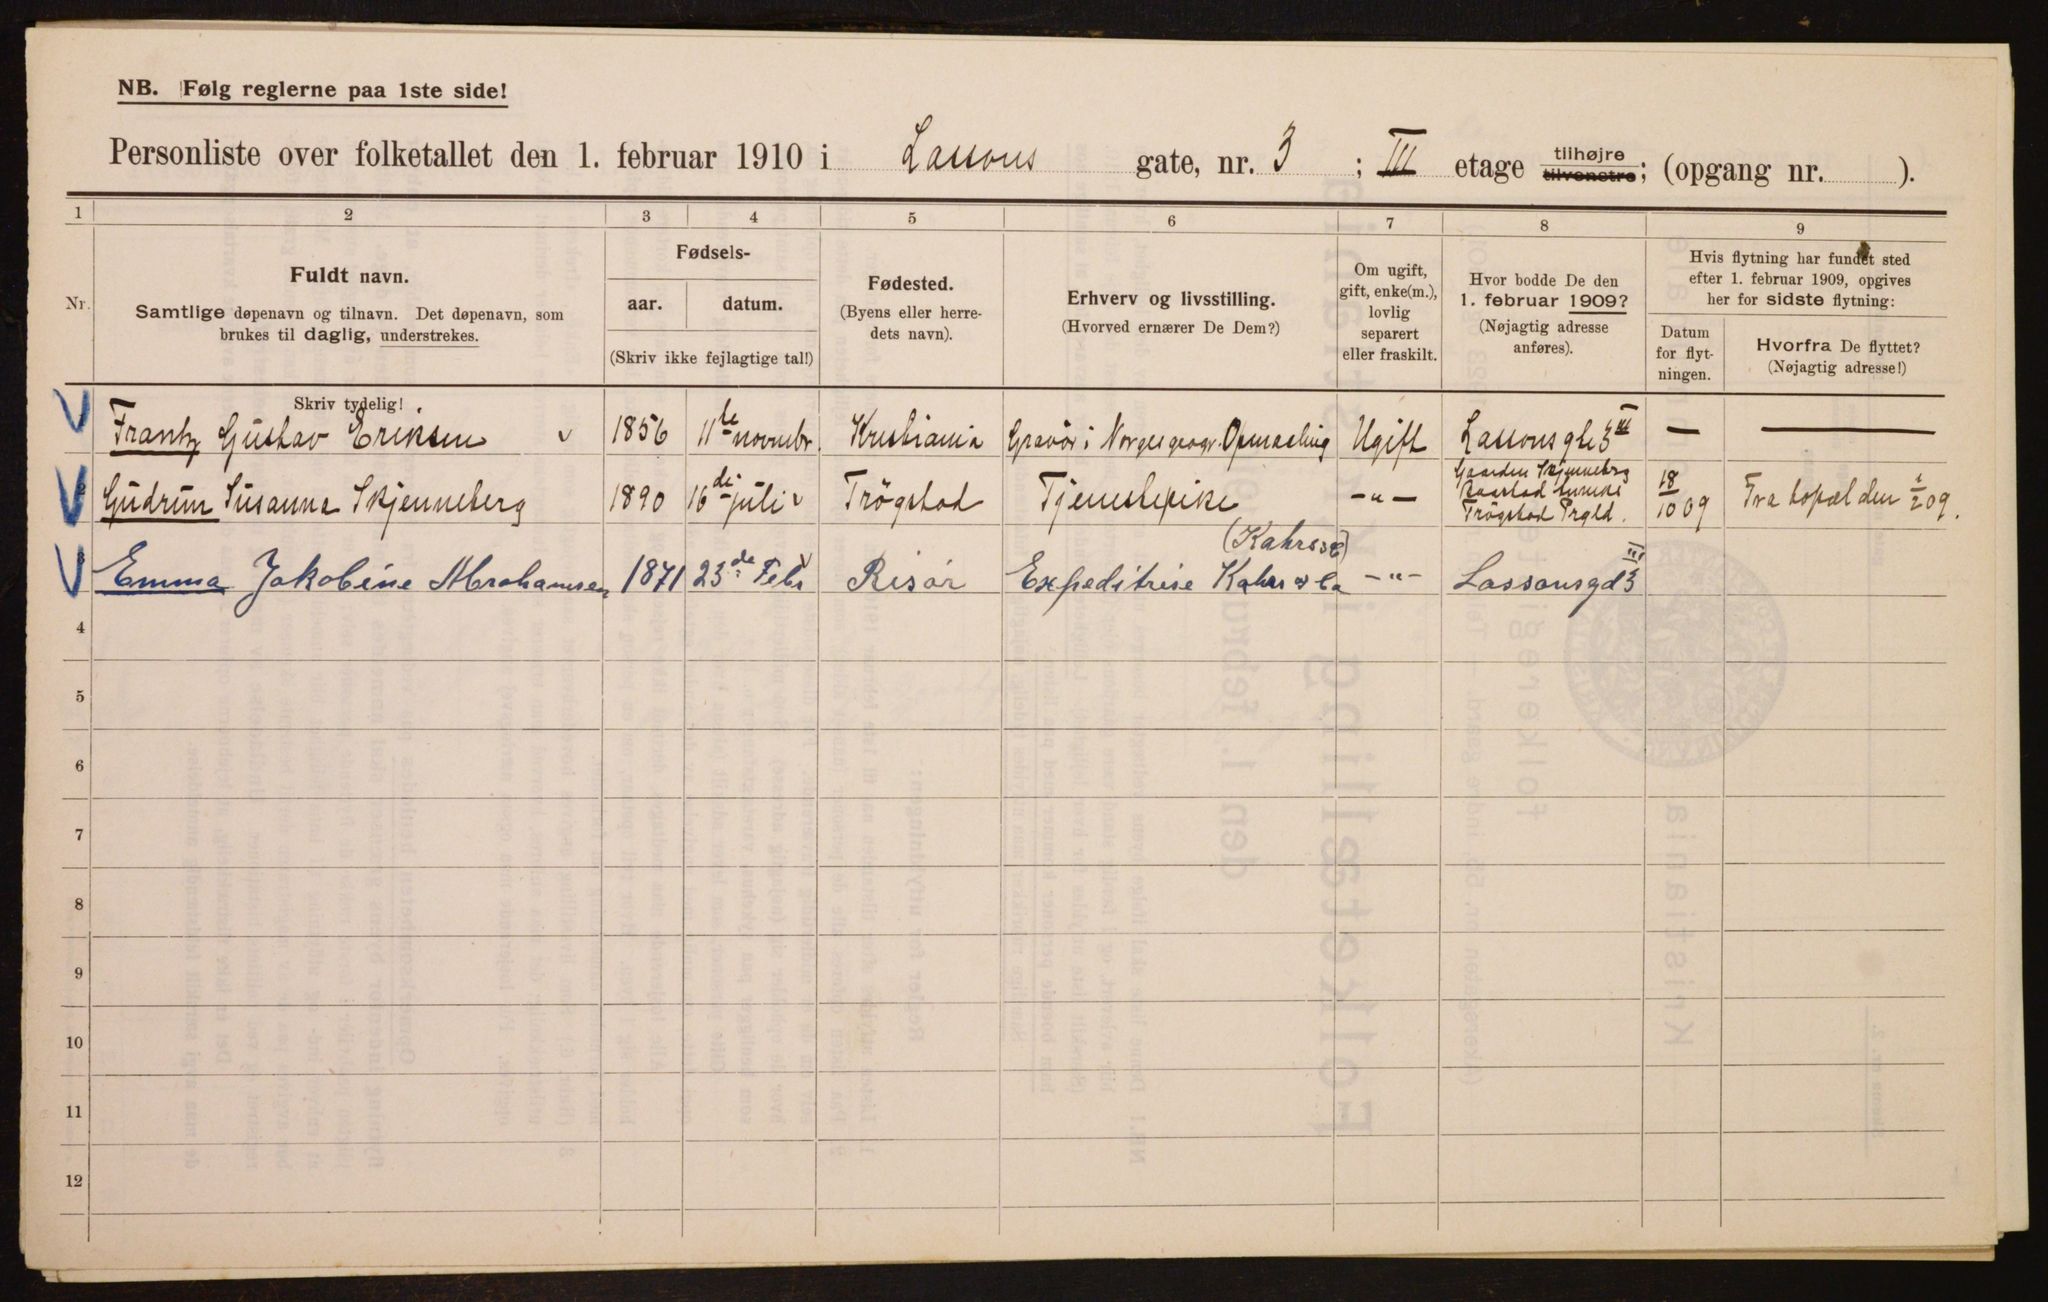 NB. Følg reglerne paa 1ste side!
Personliste over folketallet den 1. februar 1910 i Lassons gate, nr. 3 ; III etage tilhøjre tilvenstre; (opgang nr. ).
1 2 3 4 5 6 7 8 9
Nr.
Fuldt navn.
Samtlige døpenavn og tilnavn. Det døpenavn, som
brukes til daglig, understrekes.
Fødsels-
aar. datum.
(Skriv ikke fejlagtige tal!)
Fødested.
(Byens eller herre-
dets navn).
Erhverv og livsstilling.
(Hvorved ernærer De Dem?)
Om ugift,
gift, enke(m.),
lovlig
separert
eller fraskilt.
Hvor bodde De den
1. februar 1909?
(Nøjagtig adresse
anføres).
Hvis flytning har fundet sted
efter 1. februar 1909, opgives
her for sidste flytning:
Datum
for flyt-
ningen.
Hvorfra De flyttet?
(Nøjagtig adresse!)
Skriv tydelig!
Frantz Gustav Eriksen 1856 11te novmbr. Kristiania Gravør i Norges geogr. Opmaaling Ugift Lassonsgte 3 III — —
2 Gudrun Susanna Skjenneberg 1890 16de juli Trøgstad Tjenestepike —"— Gaarden Skjenneberg
Trøgstad Prgld. 18/10 09 Fra bopæl den 1/2 09.
(Kahrs & C)
3 Emma Jakobine Abrahamsen 1871 23de Febr Risør Expeditrise Kahrs & Co —"— Lassonsgd 3 III
4
5
6
7
8
9
10
11
12